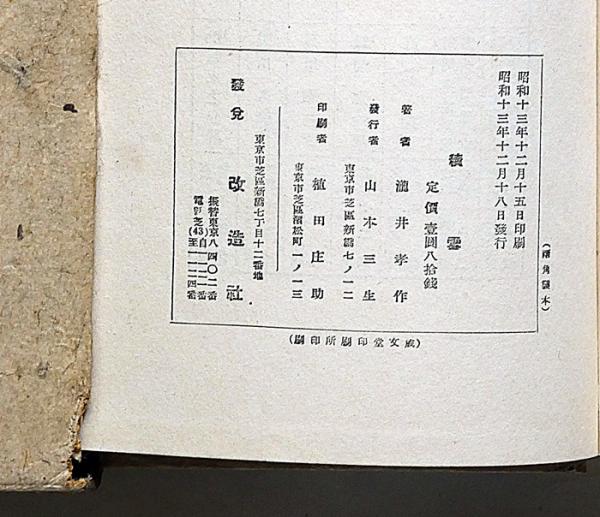 昭和十三年十二月十五日印刷
昭和十三年十二月十八日發行
積雪
定價壹圓八拾錢
著者 瀧井孝作
發行者 山本三生
東京市芝區新橋七ノ一二
印刷者 植田庄助
東京市芝區濱松町一ノ一三
東京市芝區新橋七丁目十二番地
發兌 改造社
振替東京八四〇二番
電話芝(43)自一一二一番
至一一二四番
(成文堂印刷所印刷)